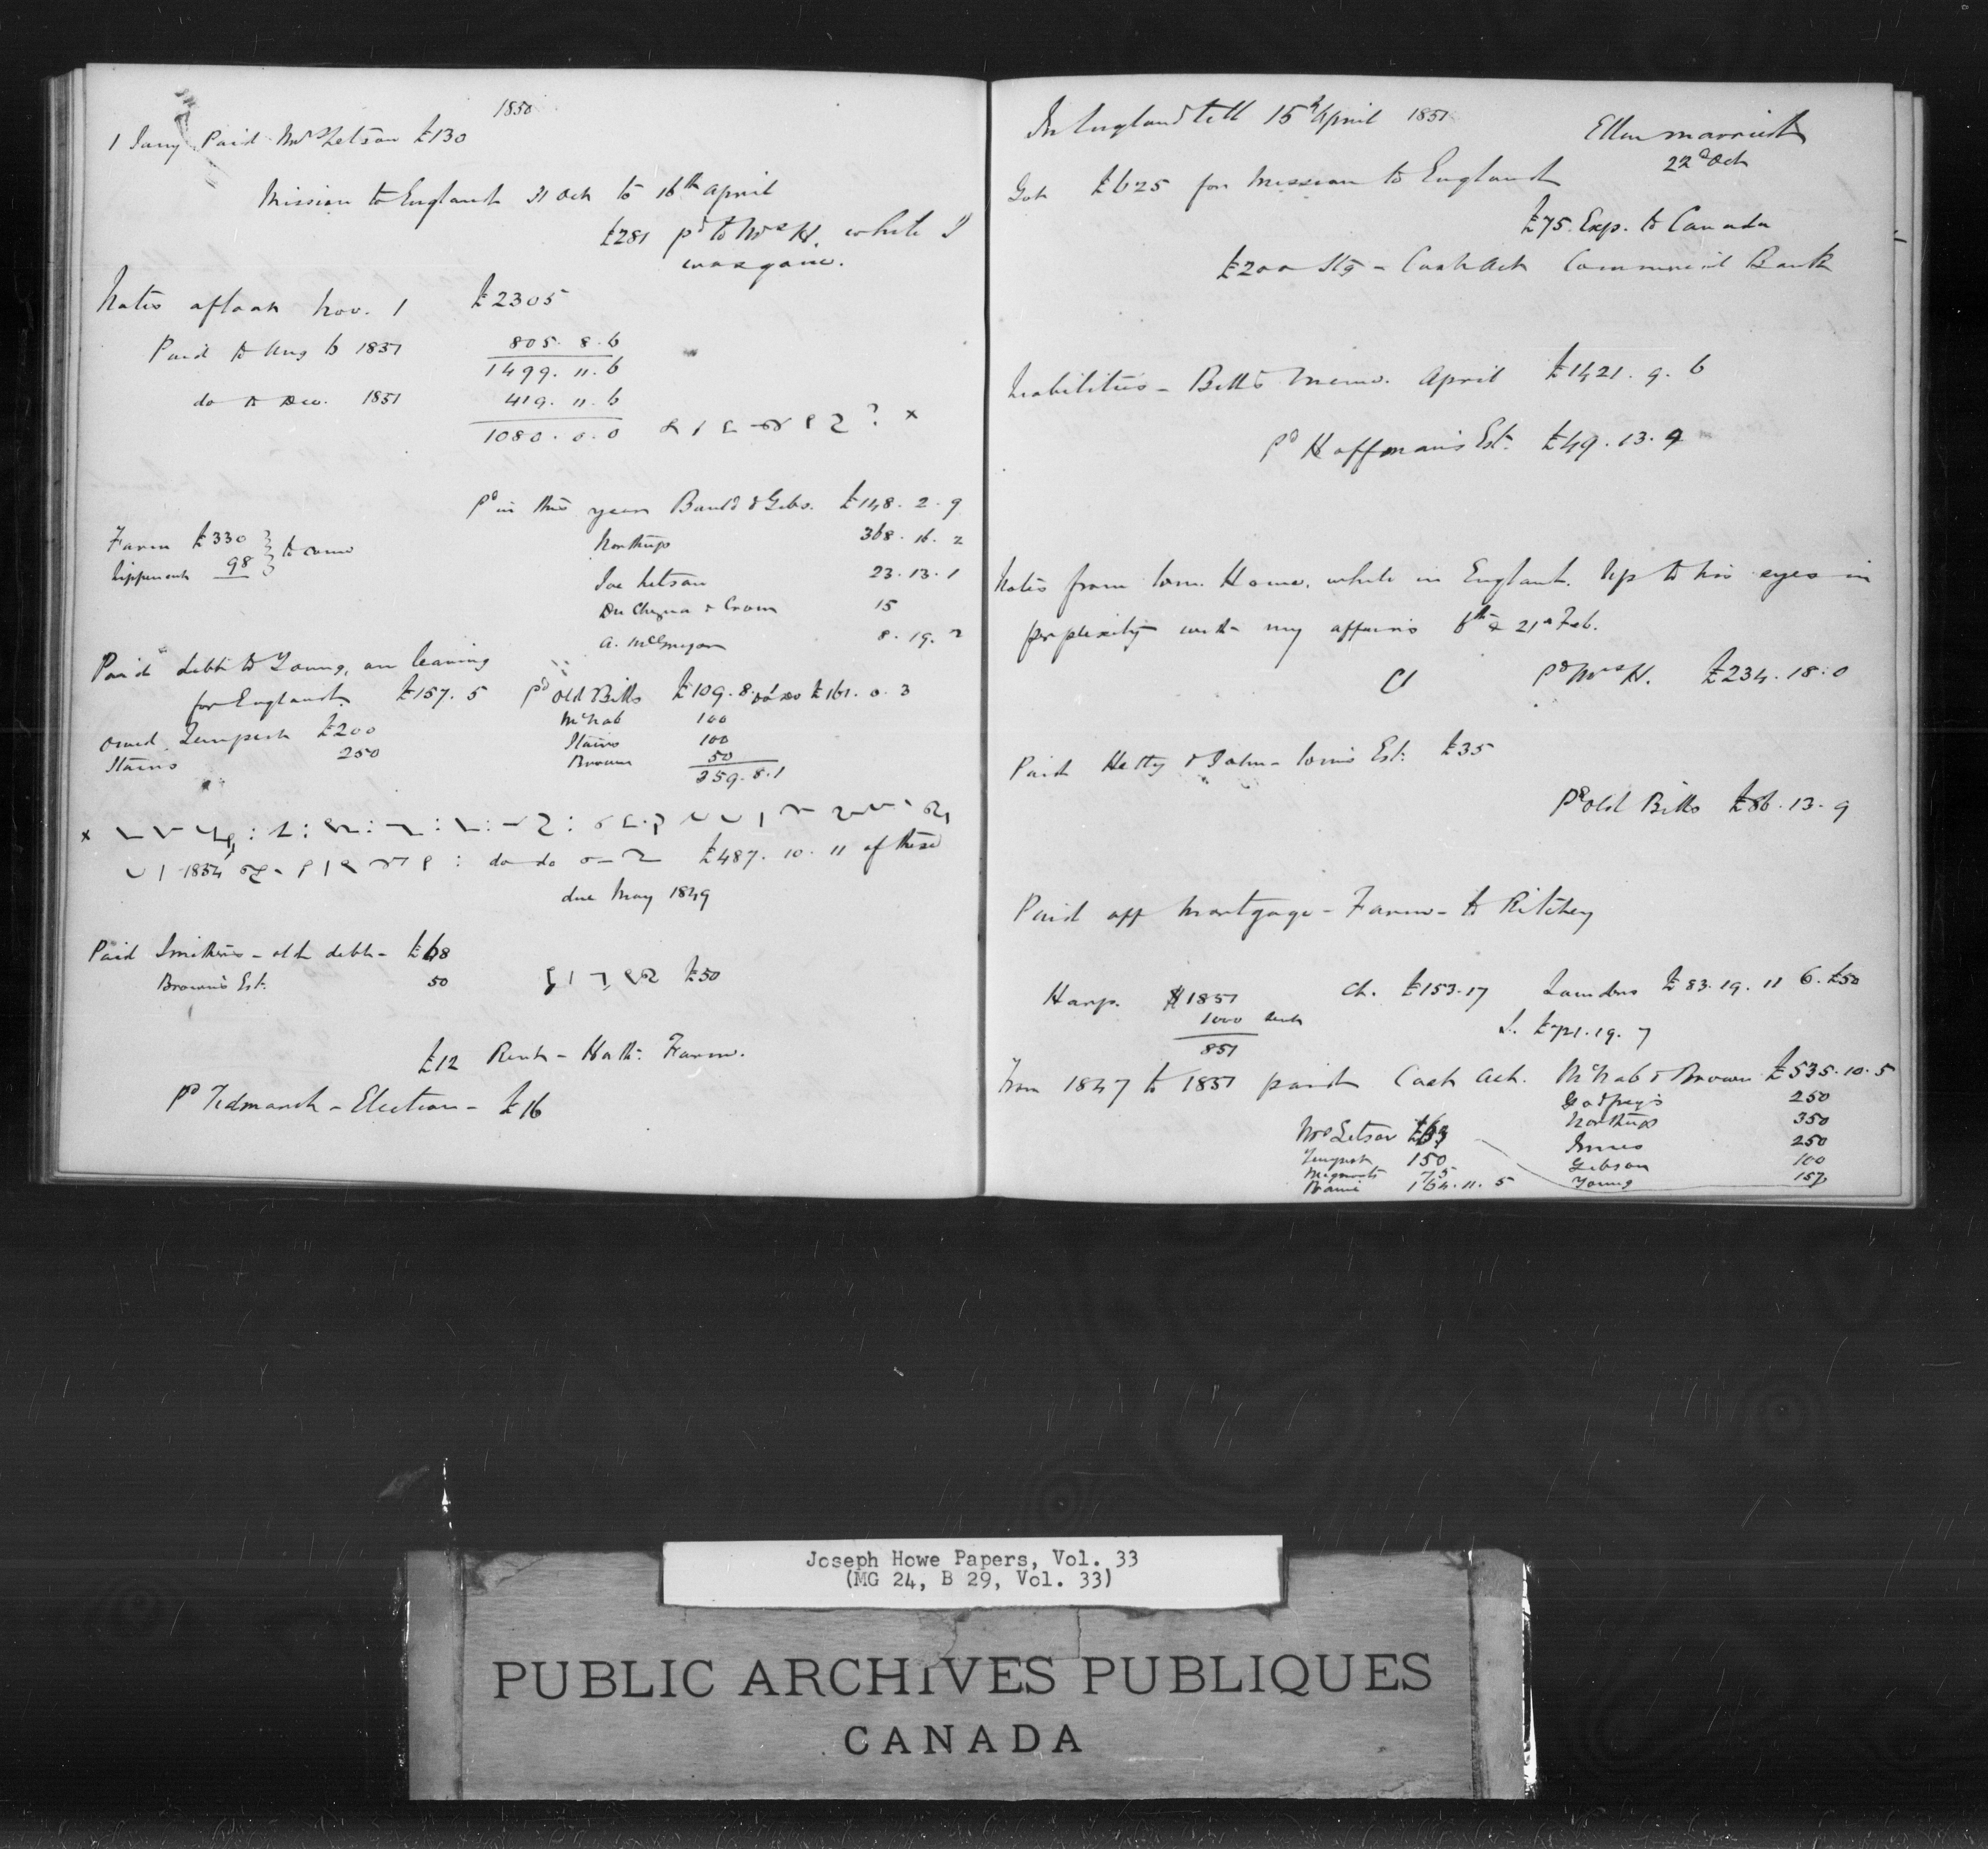 1850
1 Jany Paid Mrs Letson £130
Mission to England 31 Oct to 16th April
£281 pd to Mrs H. while I
was gone.
Notes afloat Nov. 1 £2305
Paid to Aug 6 1851 805. 8. 6
1499. 11. 6
do to Dec. 1851 419. 11. 6
1080. 0. 0 ? x
Pd in this year Bauld & Gibs. £148. 2. 9
Farm £330 to come
98
Northup 368. 16. 2
Joe Letson 23. 13. 1
15
A. McGregor 8. 19. 2
Paid debt to Young, on leaving
for England. £157. 5
Pd Old Bills £109. 8. £161. 0. 3
McNab 100
owed Tempest £200
Stairs 100
Stairs 250
Brown 50
359. 8. 1
x
1854 : do do £487. 10. 11 of these
due May 1849
Paid Smithers - old debt - £68
Brown's Est. 50 £50
£12 Rent - Hall: Farm.
Pd Tidmarsh - Election - £16
In England till 15th April 1851
Ellen married
22d Oct
Got £625 for Mission to England
£75. Exp. to Canada
£200 Stg - Cash Act Commercial Bank
Liabilities - Bill's Memo. April £1421. 9. 6
Pd Hoffman's Est. £49. 13. 9
Notes from Wm. Howe, while in England. Up to his eyes in
perplexity with my affairs 6th & 21st Feb.
Pd Mrs H. £234. 18. 0
Paid Hetty & John - Tom's Est: £35
Pd Old Bills £86. 13. 9
Paid off Mortgage - Farm - to Ritchey
Harp. 1851
1000
851
Ch. £153. 17 £83. 19. 11 6. £50
S. £71. 19. 7
From 1847 to 1851 paid Cash Act. McNab & Brown £535. 10. 5
Godfrey's 250
Northup 350
Mrs Letson
Innes 250
Tempest 150
Gibson 100
75
Young 157
164. 11. 5
Joseph Howe Papers, Vol. 33
(MG 24, B 29, Vol. 33)
PUBLIC ARCHIVES PUBLIQUES
CANADA